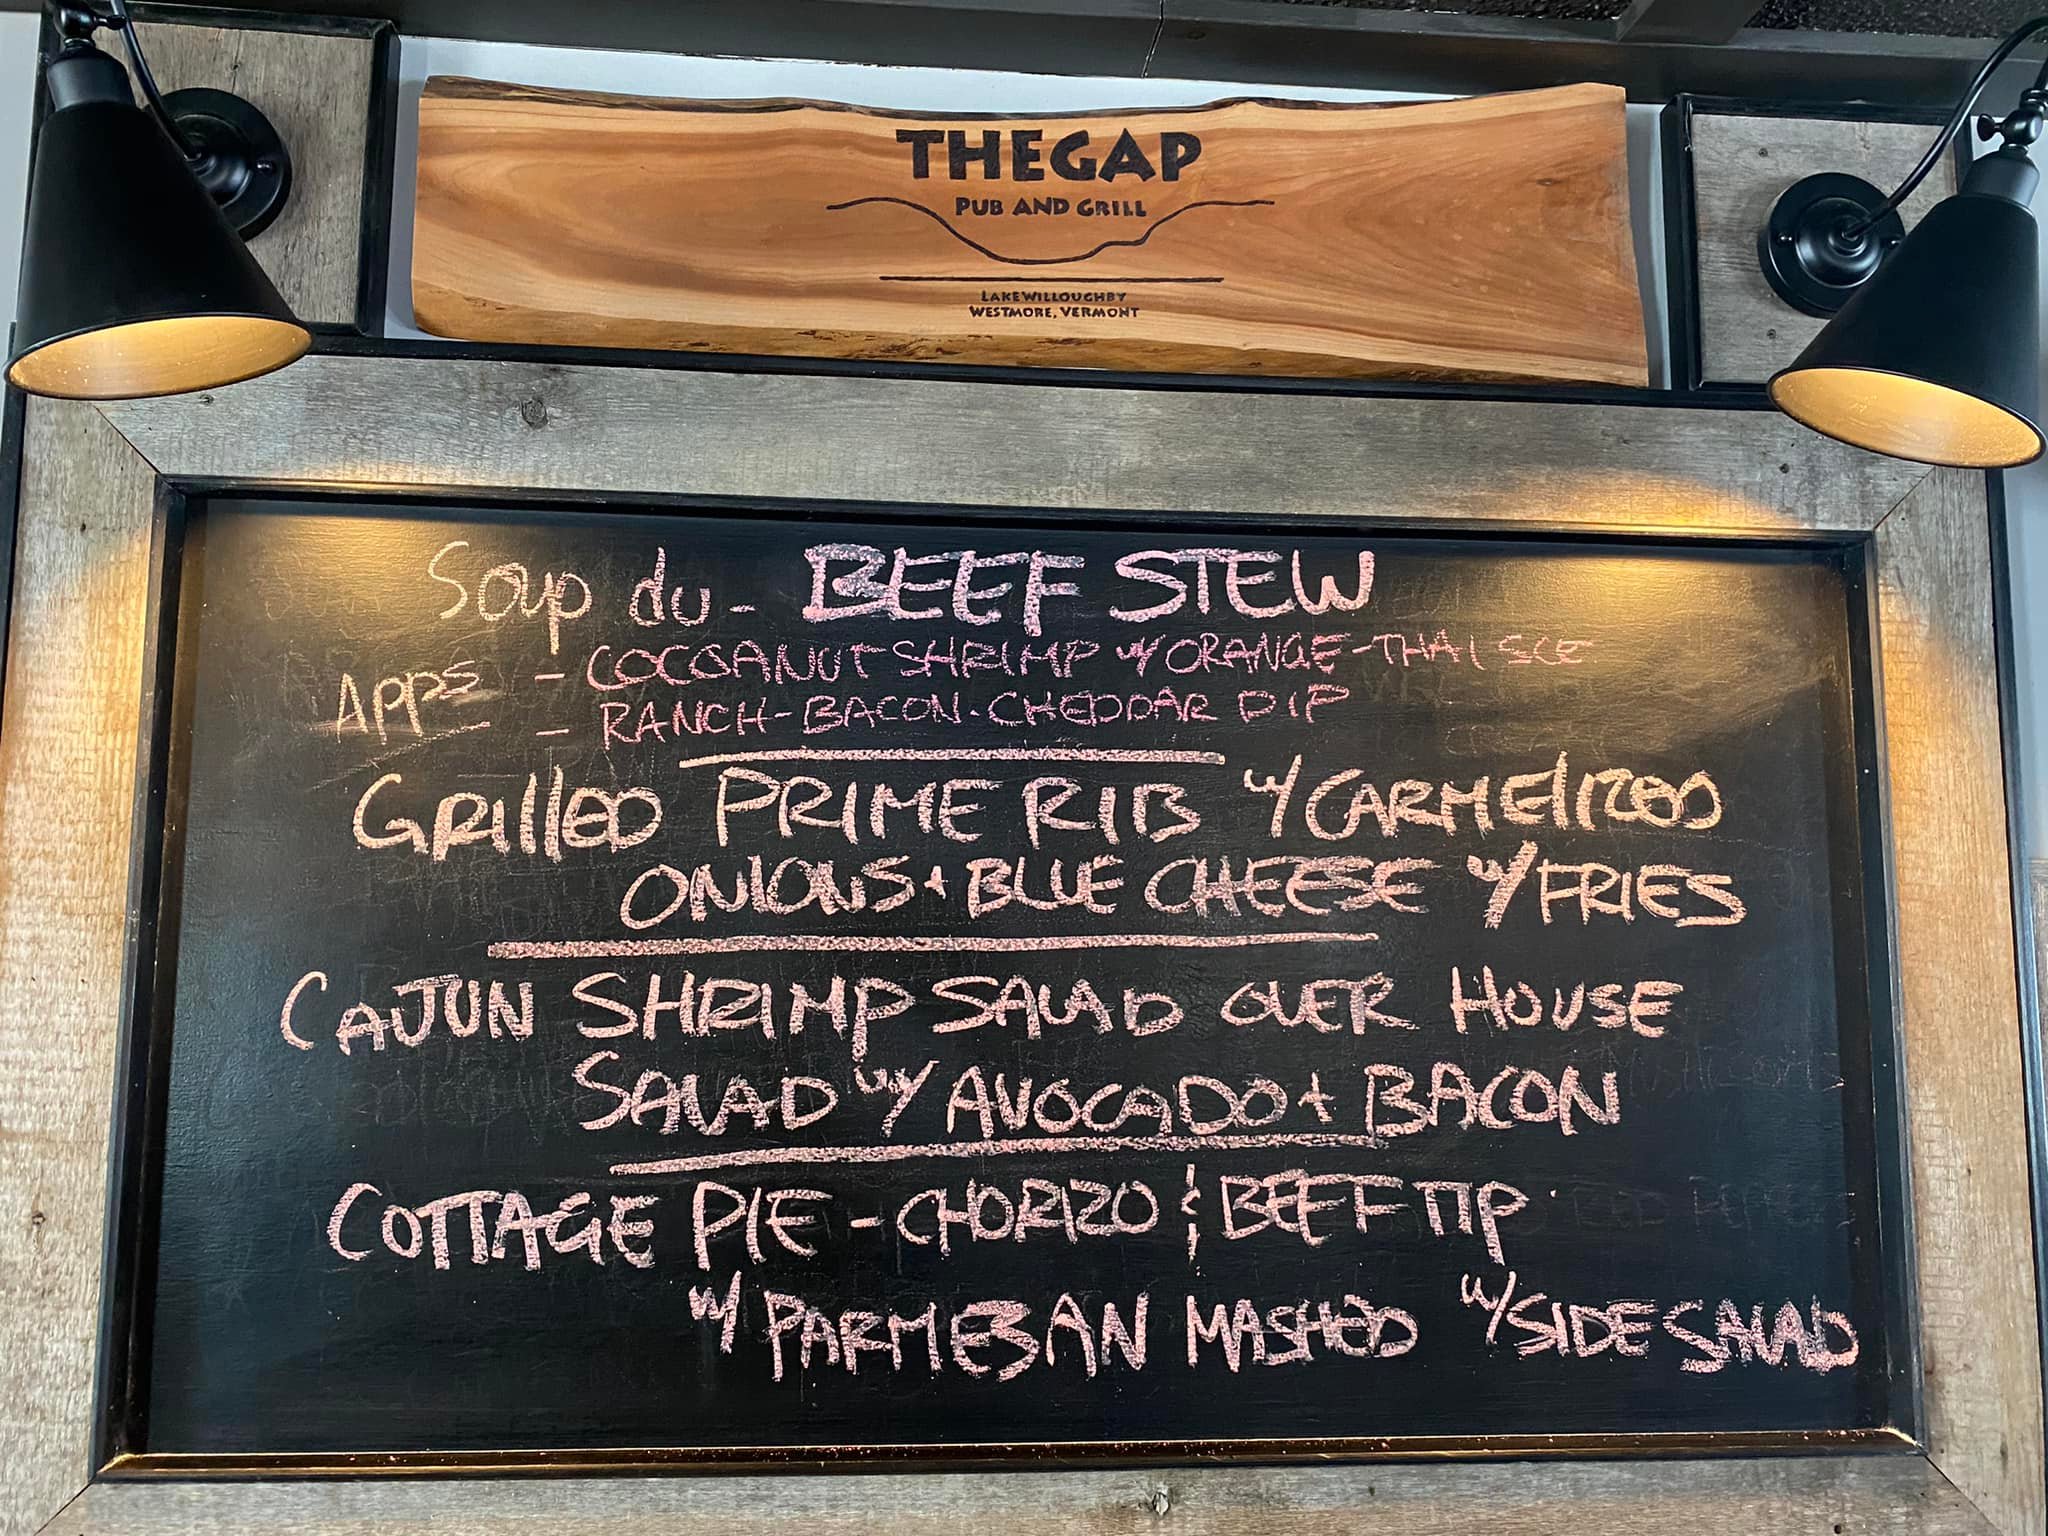 THE GAP
PUB AND GRILL
LAKE WILLOUGHBY
WESTMORE, VERMONT
Soup du - BEEF STEW
Apps - COCOANUT SHRIMP w/ ORANGE-THAI SCE
- RANCH-BACON-CHEDDAR DIP
GRIllED PRIME RIB w/ CARMElIZED
ONIONS + BLUE CHEESE w/ FRIES
CAJUN SHRIMP SALAD OVER HOUSE
SALAD w/ AVOCADO + BACON
COTTAGE PIE - CHORIZO & BEEF TIP
w/ PARMESAN MASHED w/ SIDE SALAD